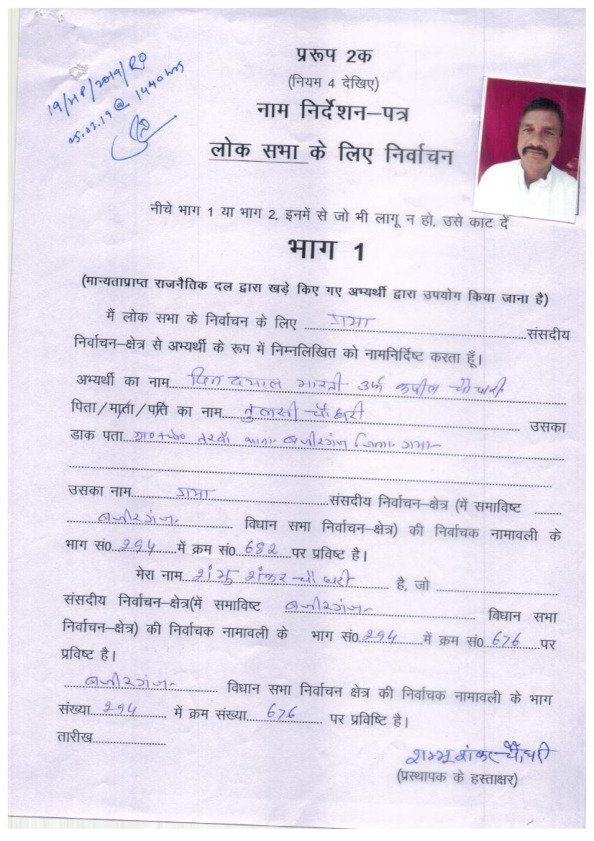 प्ररूप 2क
19/MP/2019/RO
(नियम 4 देखिए)
05.03.19 @ 1440 hrs
नाम निर्देशन–पत्र
लोक सभा के लिए निर्वाचन
नीचे भाग 1 या भाग 2, इनमें से जो भी लागू न हो, उसे काट दें
भाग 1
(मान्यताप्राप्त राजनैतिक दल द्वारा खड़े किए गए अभ्यर्थी द्वारा उपयोग किया जाना है)
मैं लोक सभा के निर्वाचन के लिए गया संसदीय
निर्वाचन–क्षेत्र से अभ्यर्थी के रूप में निम्नलिखित को नामनिर्दिष्ट करता हूँ।
अभ्यर्थी का नाम भारती उर्फ चौधरी
पिता/माता/पति का नाम तुलसी चौधरी उसका
डाक पता ग्रा०+पो० तरवाँ थाना बजीरगंज जिला गया
उसका नाम गया संसदीय निर्वाचन–क्षेत्र (में समाविष्ट
बजीरगंज विधान सभा निर्वाचन–क्षेत्र) की निर्वाचक नामावली के
भाग सं0 294 में क्रम सं0 682 पर प्रविष्ट है।
मेरा नाम शंभु शंकर चौधरी है, जो
संसदीय निर्वाचन–क्षेत्र(में समाविष्ट बजीरगंज विधान सभा
निर्वाचन–क्षेत्र) की निर्वाचक नामावली के भाग सं0 294 में क्रम सं0 676 पर
प्रविष्ट है।
बजीरगंज विधान सभा निर्वाचन क्षेत्र की निर्वाचक नामावली के भाग
संख्या 294 में क्रम संख्या 676 पर प्रविष्टि है।
तारीख
शम्भू शंकर चौधरी
(प्रस्थापक के हस्ताक्षर)